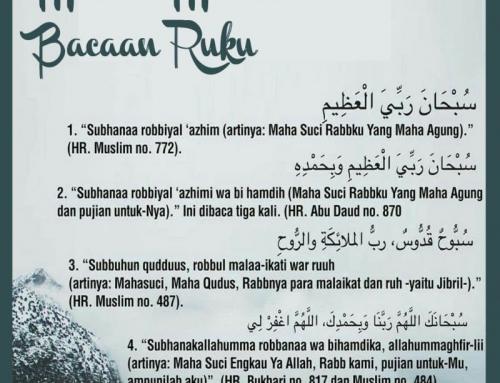 Bacaan Ruku
سُبْحَانَ رَبِّيَ الْعَظِيمِ
1. “Subhanaa robbiyal ‘azhim (artinya: Maha Suci Rabbku Yang Maha Agung).”
(HR. Muslim no. 772).
سُبْحَانَ رَبِّيَ الْعَظِيمِ وَبِحَمْدِهِ
2. “Subhanaa robbiyal ‘azhimi wa bi hamdih (Maha Suci Rabbku Yang Maha Agung
dan pujian untuk-Nya).” Ini dibaca tiga kali. (HR. Abu Daud no. 870
سُبُّوحٌ قُدُّوسٌ، ربُّ الملائِكَةِ والرُّوحِ
3. “Subbuhun qudduus, robbul malaa-ikati war ruuh
(artinya: Mahasuci, Maha Qudus, Rabbnya para malaikat dan ruh -yaitu Jibril-).”
(HR. Muslim no. 487).
سُبْحَانَكَ اللَّهُمَّ رَبَّنَا وَبِحَمْدِكَ، اللَّهُمَّ اغْفِرْ لِي
4. “Subhanakallahumma robbanaa wa bihamdika, allahummaghfir-lii
(artinya: Maha Suci Engkau Ya Allah, Rabb kami, pujian untuk-Mu,
ampunilah aku)”. (HR. Bukhari no. 817 dan Muslim no. 484)